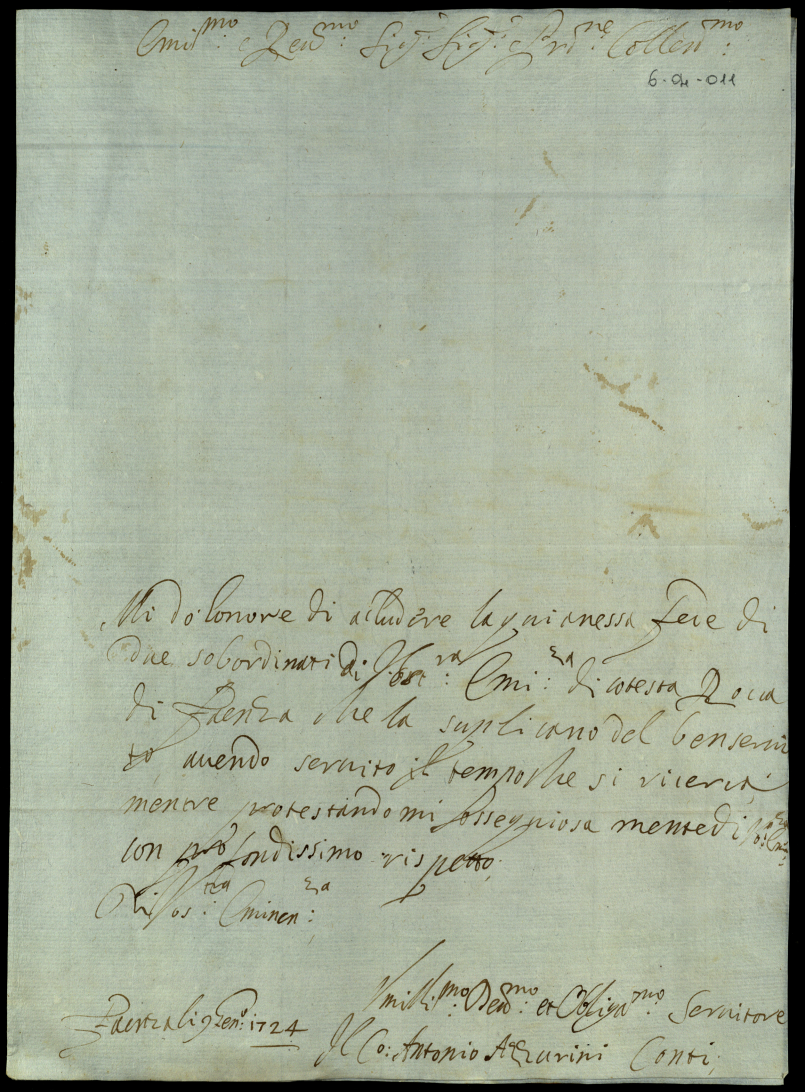 Emi.mo e Rev.mo Sig.r Sig.r e P.rone Collen.mo:
6-01-011
Mi dò l'onore di acludere la qui anessa Fede di
due sobordinati di Vost.ra: Emi:za di cotesta Rocca
di Faenza che la suplicano del benservi
to, avendo servito il tempo che si ricerca
mentre protestandomi ossequiosamente di Vo: Em.za:
con profondissimo rispetto,
Di Vos:tra Eminen:za
Faenza li 9 Gen.o: 1724
Umilli.mo: Dev.mo et Obliga.mo: Servitore
Il Co: Antonio Azzurini Conti;